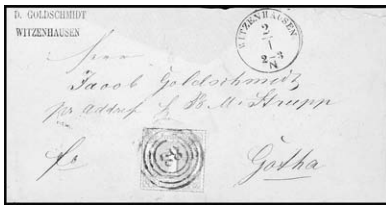 D. GOLDSCHMIDT
WITZENHAUSEN
WITZENHAUSEN
2
1
2-3
N
Herrn
Jacob Goldschmidt
per Addresse B. M. Strupp
fr
Gotha